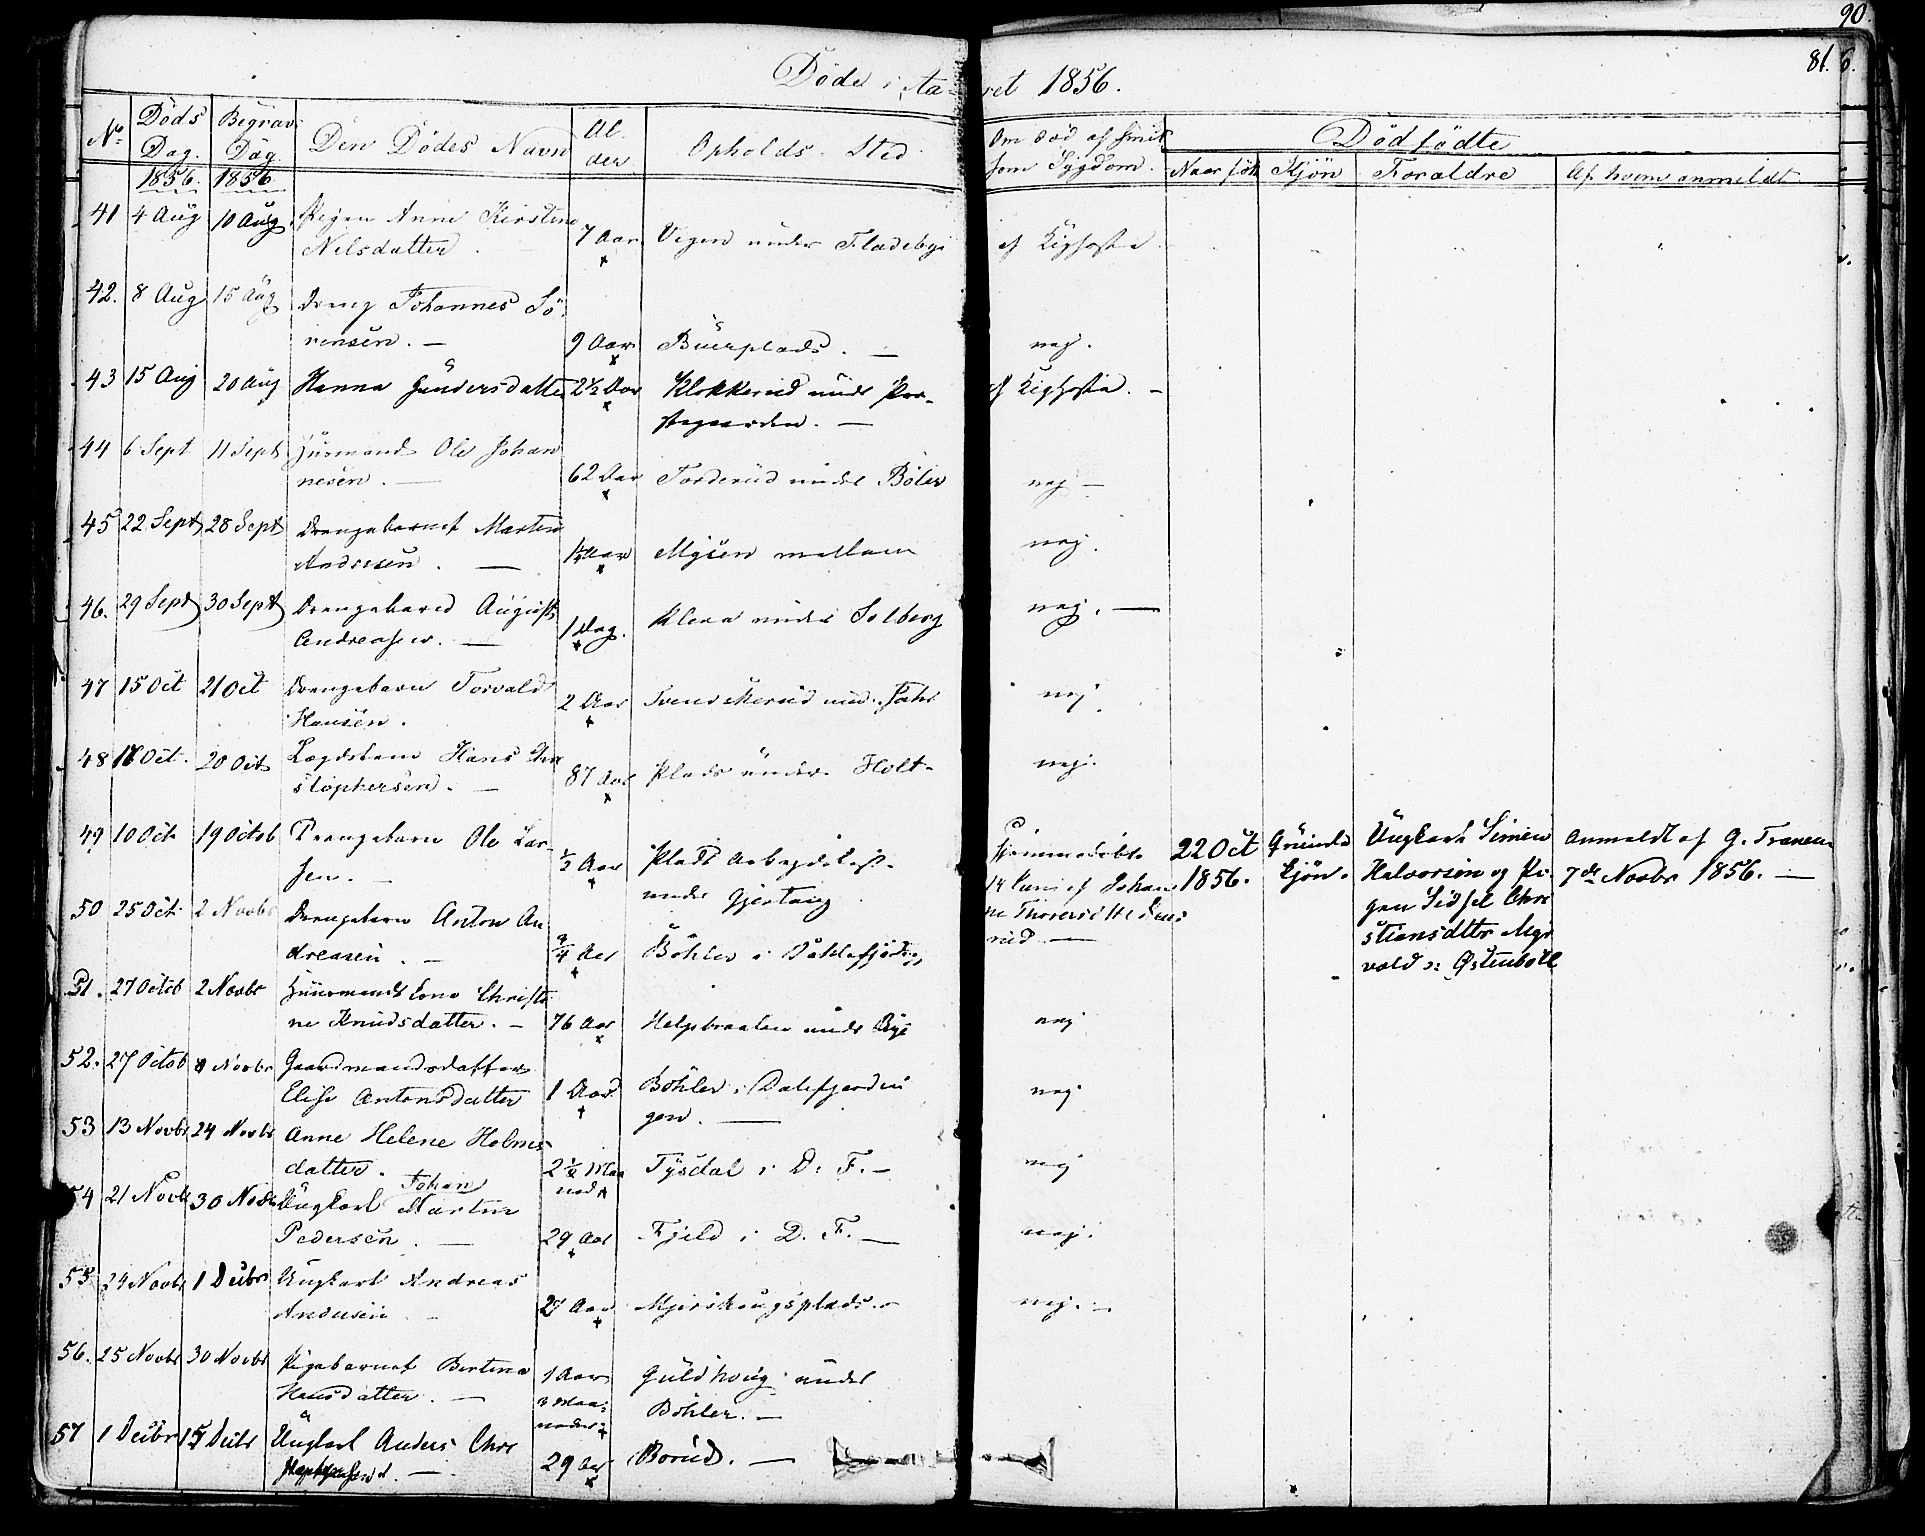 90.
81. 6.
Døde i Aaret 1856.
No Døds Dag. Begrav: Dag Den Dødes Navn Alder Opholds Sted Om død af smitsom Sygdom. Dødfødte
Naar født Kjøn Forældre Af hvem anmeldt
1856. 1856
41 4 Aug 10 Aug Pigen Anne Kirstine
Nilsdatter 7 Aar Vegen under Fladebye af Kighoste
42. 8 Aug 15 Aug Dreng Johannes Sö-
rensen. 9 Aar Buerplads. nej.
43 15 Aug 20 Aug Hanna Gundersdatter 2½ Aar Klokkerud under Præ-
stegaarden. af Kighoste.
44 6 Sept 11 Sept Huusmand Ole Johan
nesen. 62 Aar Torderud under Böler nej
45 22 Sept 28 Sept Drengebarnet Martin
Andersen. Aar Mysen mellem nej.
46. 29 Sept 30 Sept Drengebarn August
Andreasen. 1 Dag. under Solberg nej.
47 15 Oct 21 Oct Drengebarn Torvald
Hansen. 2 Aar Svenskerud und. nej
48 Oct. 20 Oct Lægdslem Hans Chri
stophersen. 87 Aar Plads under Holt nej.
49 10 Oct 19 Octob Drengebarn Ole Lar-
sen. ½ Aar Plads
under Gjertaug
Hjemmedøbt 22 Oct Qvinde Ungkarl Simen Anmeldt af G. Tranem
af Johan 1856. Kjön. Halvorsen og Pi- 7de Novbr 1856.
gen Sidsel Chri
stiansdttr
50 25 Oct. 2 Novbr Drengebarn Anton An
dreasen. ¾ Aar Böhler i Dahlefjerdin
51. 27 Octob 2 Novbr Huusmandskone Christi
ne Knudsdatter. 76 Aar Helgebraaten under Bye nej
52. 27 Octob Novbr Gaardmandsdatter
Elise Antonsdatter 1 Aar Böhler i Dalefjerdin
gen. nej
53 13 Novbr 24 Novbr Anne Helene Holms
datter. 2½ Maa
neder Tysdal i D. F. nej
54 21 Novbr 30 Novbr Ungkarl Johan Martin
Pedersen. 29 Aar Fjeld i D. F. nej.
55 24 Novbr 1 Decbr Ungkarl Andreas
Andersen 27 Aar Mjerskougsplads. nej.
56. 25 Novbr 30 Novbr Pigebarnet Bertina
Hansdatter. 1 Aar
3 Maa-
neder Guldhoug under
Böhler.
57 1 Decbr 15 Decbr Ungkarl Anders Chri
29 Aar Borud.